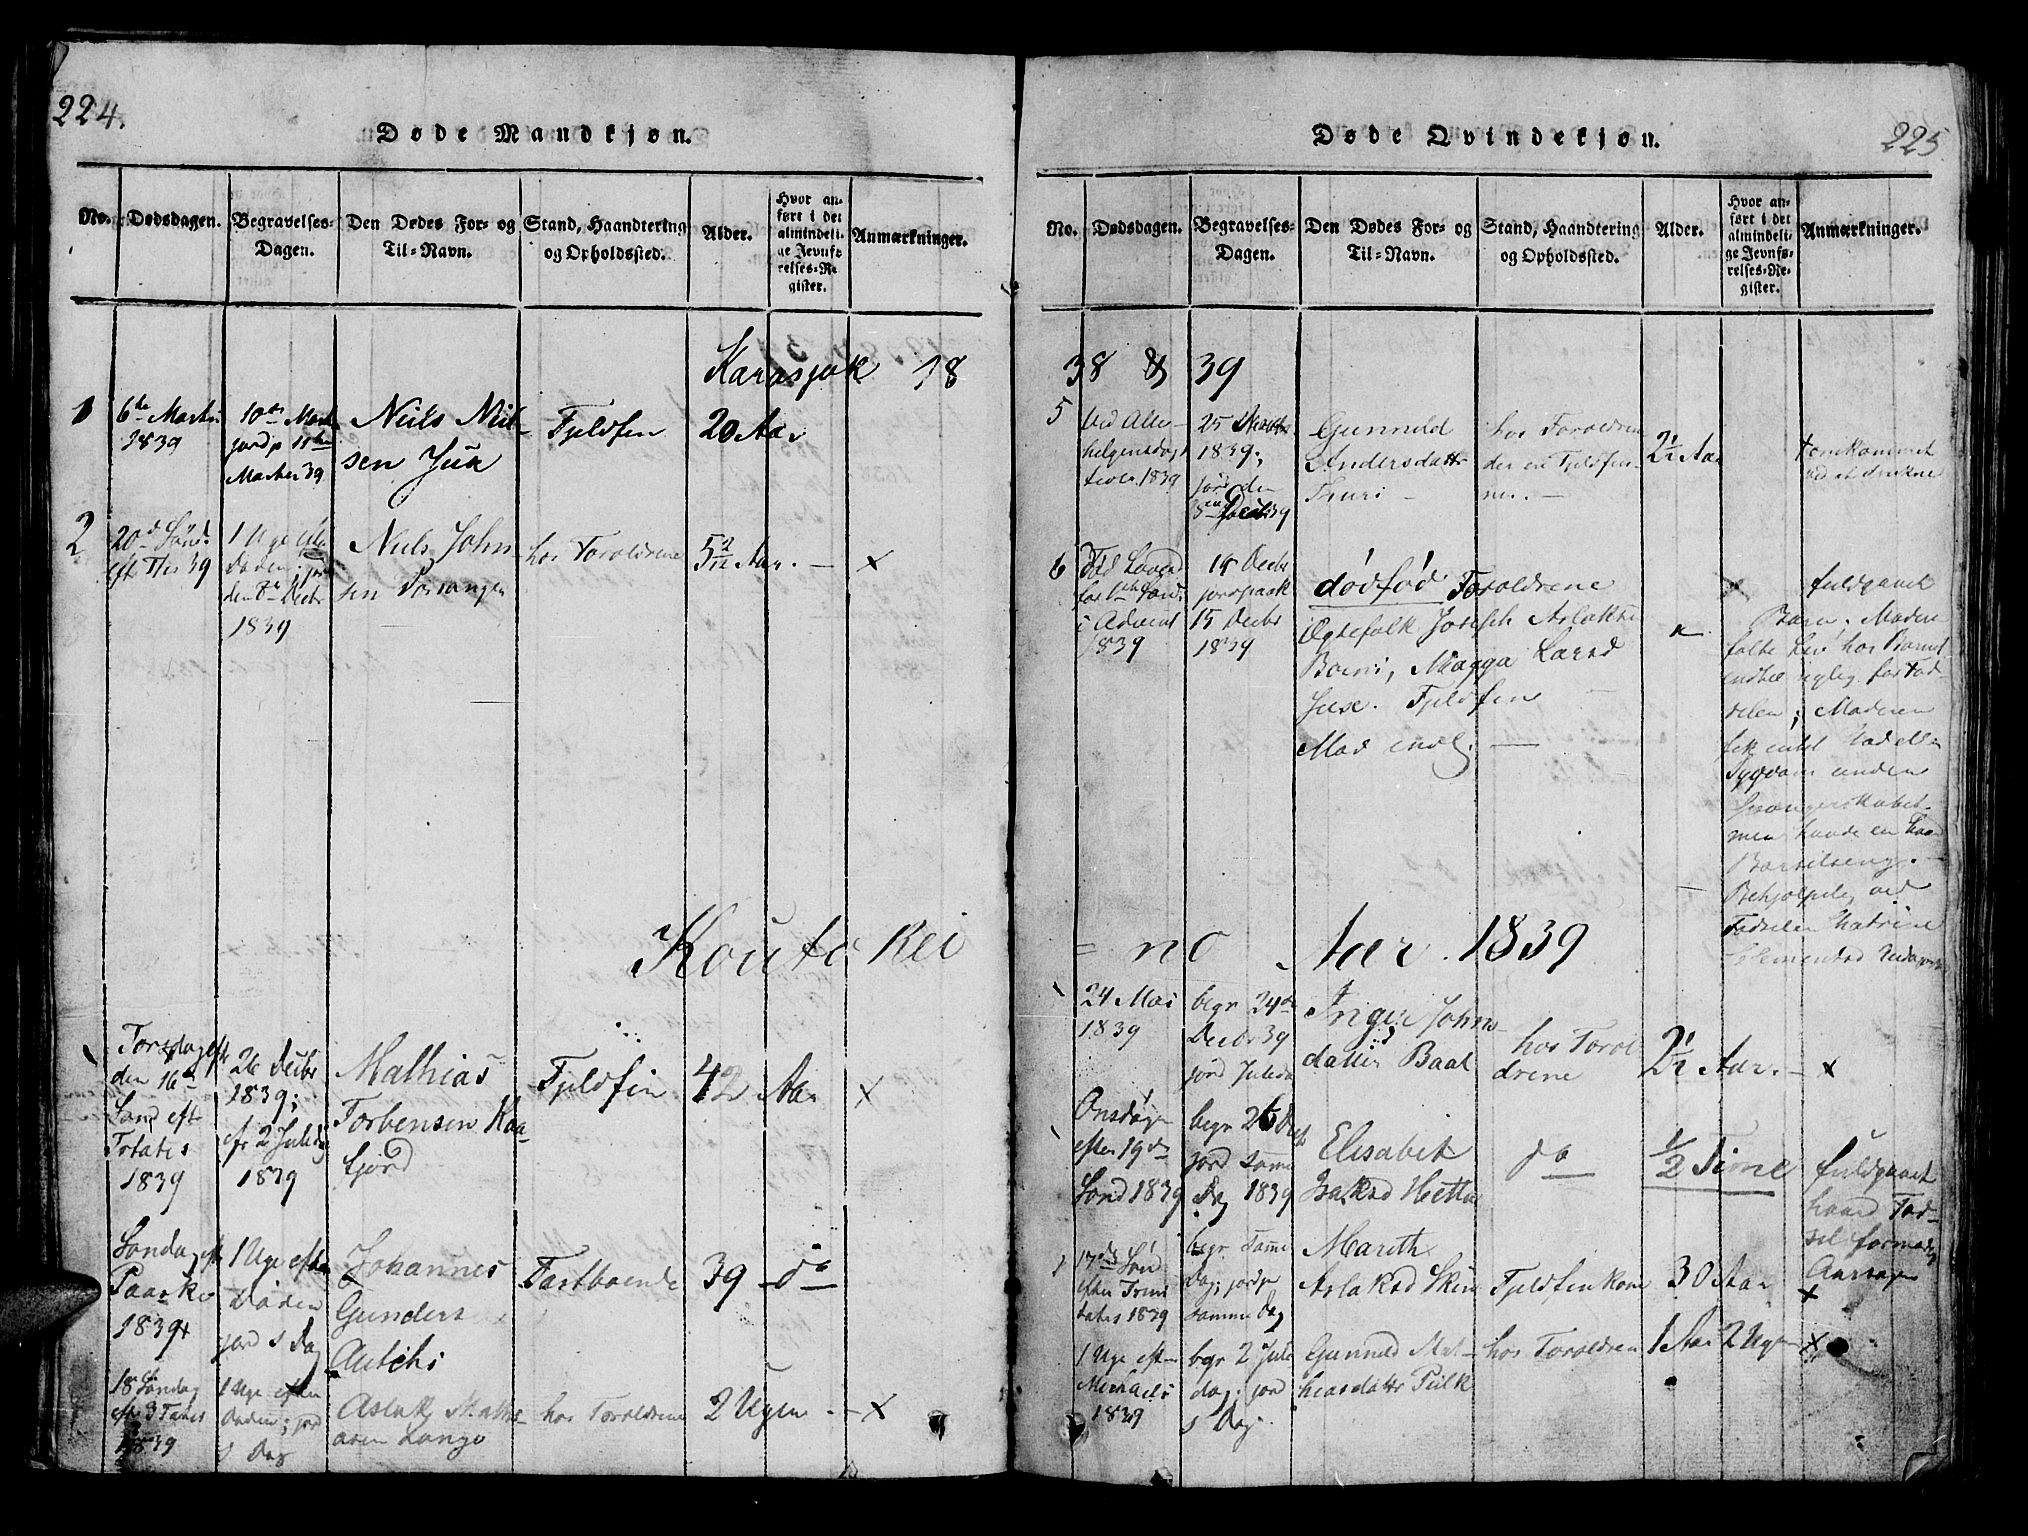 224.
Døde Mandkjøn.
No.
Dødsdagen.
Begravelses-
Dagen.
Den Dødes For- og
Til-Navn.
Stand, Haandtering
og Opholdssted.
Alder.
Hvor an-
ført i det
almindeli-
ge Jevnfø-
relses-Re-
gister.
Anmærkninger.
Karasjok 18
1
6te Marts
1839
10de Marts
jordp 11te
Marts 39
Niels Niel-
sen Jua
Fjeldfin
20 Aar
2
20d Sønd.
eft Tr 39
1 Uge efter
Døden; jord
den 8de Decbr
1839
Niels John
sen Porsanger
hos Foroldrene
5 2/12 Aar. — x
Kouto kei
Torsdag eft
den 16de
Sønd eft
Trtatis
1839
26 Decbr
1839;
2 Juledag
1839
Mathias
Torbensen Kaa-
fjord
Fjeldfin
42 Aar
x
Søndag eft
Paaske
1839
1 Uge efter
Døden
jord s Dag
Johannes
Gunders
Autchi
Fastboende
39 do
18 Søndag
eft Tr tates
1839
1 Uge efter
Døden; jord
s Dag
Aslak Maths-
sen Lango
hos Foroldrene
2 Uger. — x
225
Døde Qvindekjøn.
No.
Dødsdagen.
Begravelses-
Dagen.
Den Dødes For- og
Til-Navn.
Stand, Haandtering
og Opholdssted.
Alder.
Hvor an-
ført i det
almindeli-
ge Jevnfø-
relses-Re-
gister.
Anmærkninger.
38 & 39
5
Ved Alle-
helgensdags
tider 1839
25 Novbr
1839;
jord den
3die Decbr 39
Gunneld
Andersdatter
Thuri —
hos Foroldrene
der er Fjeldfin-
ner. —
2 1/2 Aar
omkommet
ved at drukne
6
Tid Løverd
før 1ste Sønd.
i Advent
1839
14 Decbr
jordpaak
15 Decbr
1839
dødfød Foroldrene
Ægtefolk Joseph Aslaksen
Boini, Magga Larsd
Juse. Fjeldfin
x
fuldgaaet
Barn; Moderen
følte Liv hos Barnet
indtil nylig før Fød-
selen; Moderen
fik intet Stød eller
Sygdom under
Svangerskabet
men havde en haard
Barselseng. —
Behjelpelig ved
Fødselen Cathrine
Clemetsd
= no Aar. 1839
24 Mai
1839
begr 24de
Decbr 39
jord Juledag
Inger Johns-
datter Baal
hos Forol
drene
2 1/2 Aar. — x
Onsdag
efter 19de
Sønd 1839
begr 26 Dec
jord samme
Dag 1839
Elisabet
Isaksd Hetta
do
1/2 Time
fuldgaaet
haard Fød-
sel formodeg
Aarsagen
17de Søn
efter Trini
tatis 1839
begr. samme
Dag; jordp
samme Dag
Mareth
Aslaksd Skum
Fjeldfinkone
30 Aar
x
1 Uge eft
Michaeli
1839
bgr 2 Jule
dag; jord
s Dag.
Gunneld Mat-
hiasdatter Pulk
hos Foroldrene
1 Aar 2 Uger x